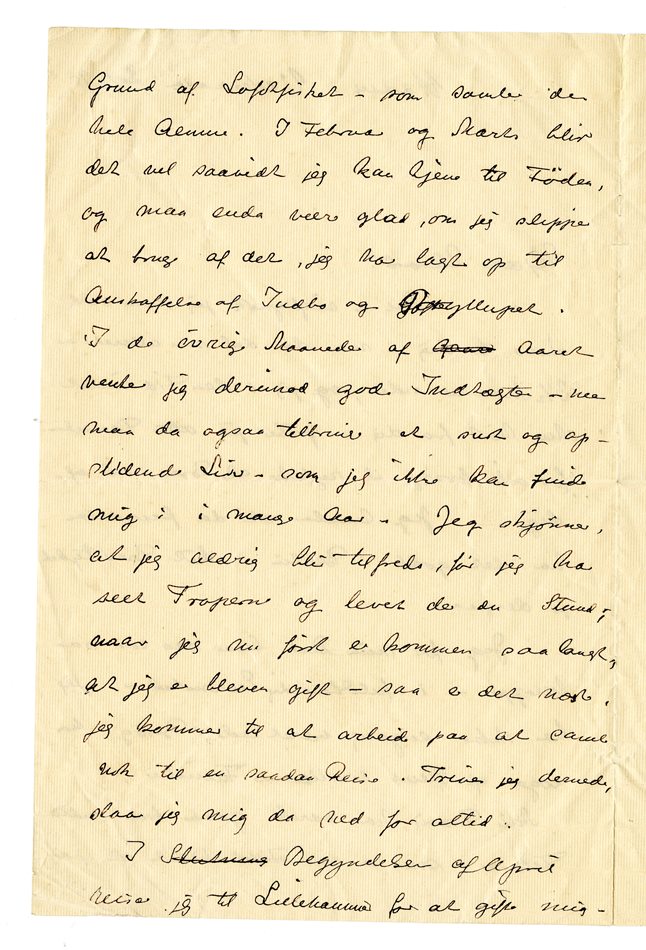 Grund af Lofotfisket – som samler den
hele Almue. I Februar og Marts blir
det vel saavidt jeg kan tjene til Föden,
og maa enda være glad, om jeg slipper
at bruge af det, jeg har lagt op til
Anskaffelse af Indbo og Bryllupet.
I de övrige Maaneder af Aaret
venter jeg derimod gode Indtægter – men
maa da ogsaa tilbringe et surt og op-
slidende Liv – som jeg ikke kan finde
mig i i mange Aar – Jeg skjönner,
at jeg aldrig blir tilfreds, för jeg har
seet Troperne og levet der en Stund;
naar jeg nu först er kommen saa langt,
at jeg er bleven gift – saa er det næste,
jeg kommer til at arbeide paa at samle
nok til en saadan Reise. Trives jeg dernede,
slaar jeg mig da ned for altid.
I Slutning Begyndelsen af April
reiser jeg til Lillehammer for at gifte mig –